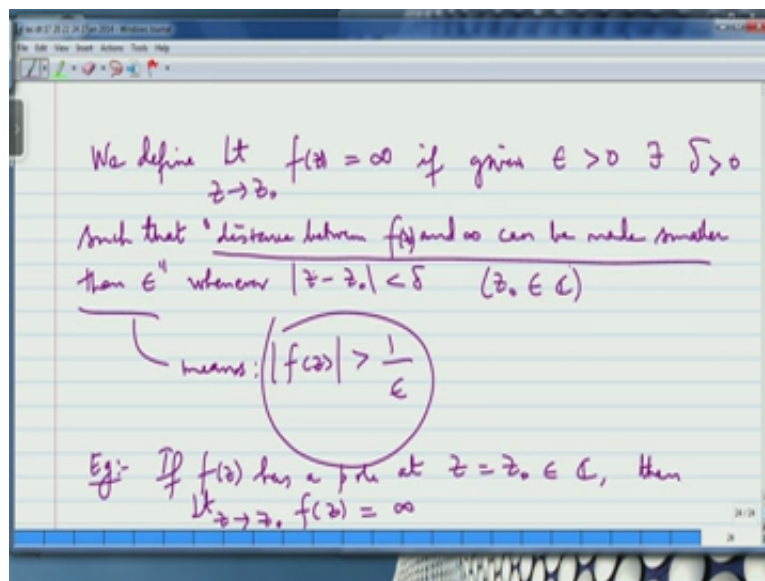 File Edit View Insert Actions Tools Help
We define Lt f(z) = ∞ if given ϵ > 0 ∃ δ > 0
z → z₀
such that "distance between f(z) and ∞ can be made smaller
than ϵ" whenever |z - z₀| < δ (z₀ ∈ ℂ)
means: |f(z)| > 1/ϵ
Eg:- If f(z) has a pole at z = z₀ ∈ ℂ, then
Lt z → z₀ f(z) = ∞
24 / 24
24